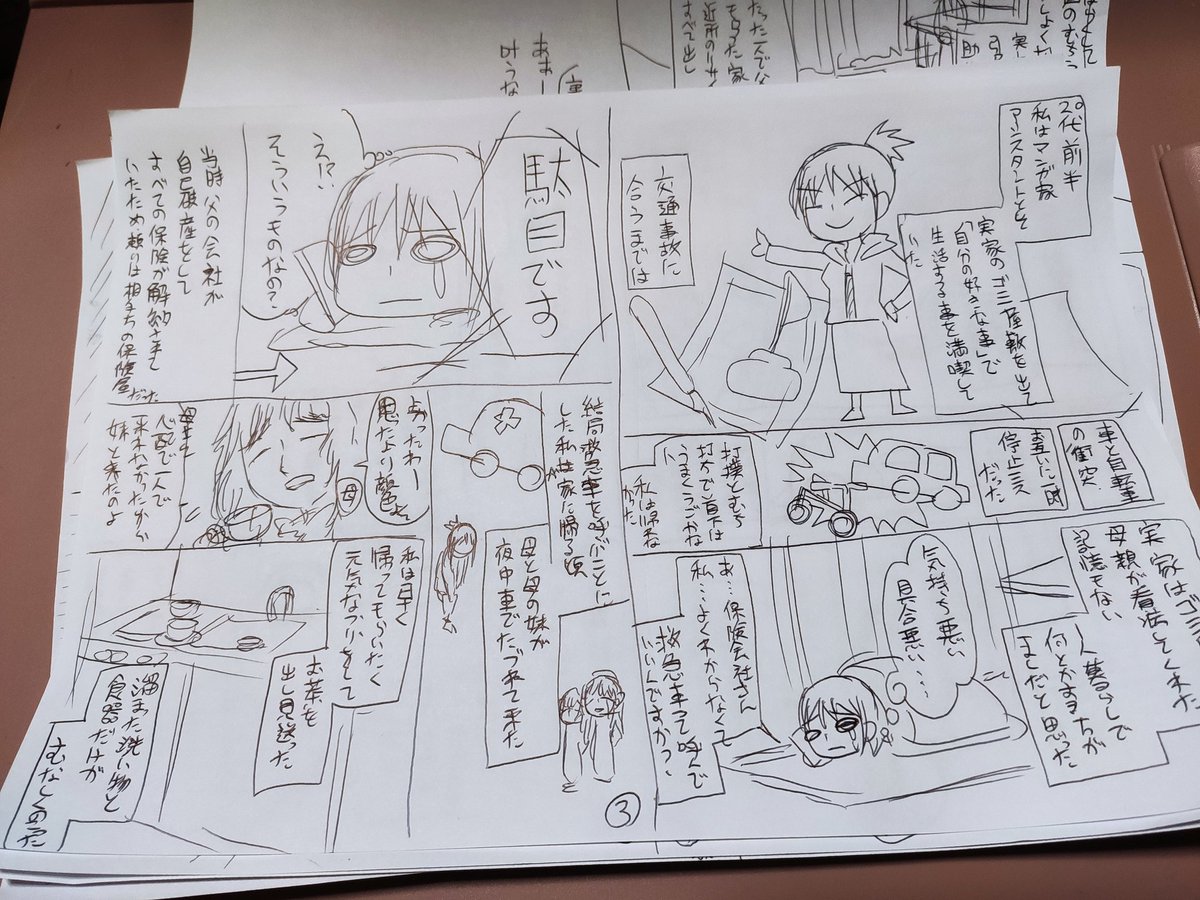 20代前半
私はマンガ家
アシスタントとして
実家のゴミ屋敷を出て
「自分の好きな事」で
生活する事を満喫して
いた
交通事故に
合うまでは
車と自転車
の衝突
停止ミス
だった
打撲とむち
打ちで首下は
うまくうごかな
い
私は帰宅
実家はゴミ
母親が看病してくれた
記憶もない
一人暮らしで
何とかする方が
ましだと思った
気持ち悪い
具合悪い…
あ…保険会社さん
私…よくわからなくて
救急車って呼んで
いいんですかっ?
駄目です
え!?
そういうものなの?
当時父の会社が
自己破産をして
すべての保険が解約されて
いたため頼りは相手の保険屋
だった
結局救急車を呼ぶことに
した私が家に帰る頃
母と母の妹が
夜中車でたづねて来た
よかったわー
思たより顔色
母
心配で一人で
来れなかったから
妹と来たのよ
私は早く
帰ってもらいたく
元気なフリをして
お茶を
出し見送った
溜また洗い物と
食器だけが
むなしくのこった
3